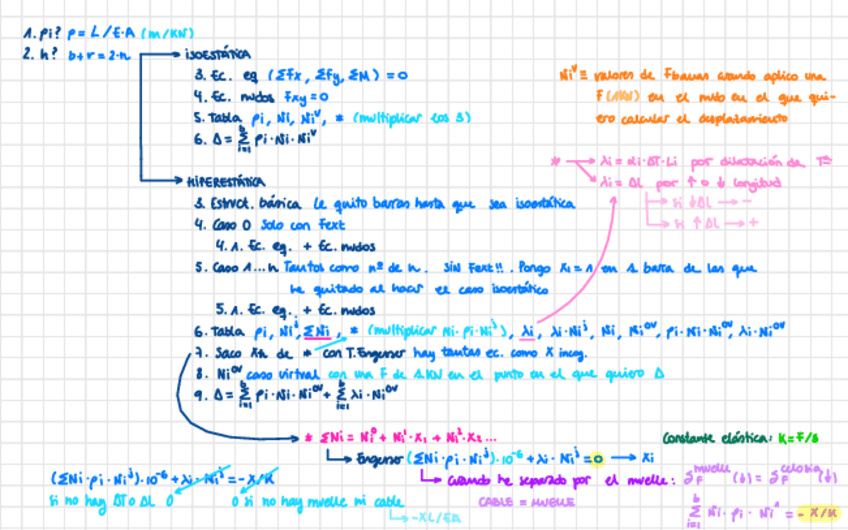 1. ρi? ρ = L/E·A (m/KN)
2. h? b+r = 2·n
ISOESTÁTICA
3. Ec. eq (Σfx, Σfy, ΣM) = 0
4. Ec. nudos Fxy = 0
5. Tabla ρi, Ni, Niᵛ, * (multiplicar los 3)
6. Δ = Σ ρi·Ni·Niᵛ
b
i=1
Niᵛ ≡ valores de Fbarras cuando aplico una
F (1KN) en el nudo en el que qui-
ero calcular el desplazamiento
* → λi = αi·ΔT·Li por dilatación de Tª
λi = ΔL por ↑ o ↓ longitud
si ↓ΔL → -
si ↑ΔL → +
HIPERESTÁTICA
3. Estruct. básica Le quito barras hasta que sea isoestática
4. Caso 0 Solo con Fext
4.1. Ec. eq. + Ec. nudos
5. Caso 1...h Tantos como nº de h. SIN Fext!!. Pongo X₁ = 1 en 1 barra de las que
he quitado al hacer el caso isoestático
5.1. Ec. eq. + Ec. nudos
6. Tabla ρi, Niʲ, ΣNi, * (multiplicar Ni·ρi·Niʲ), λi, λi·Niʲ, Ni, Ni⁰ᵛ, ρi·Ni·Ni⁰ᵛ, λi·Ni⁰ᵛ
7. Saco Xh de * con T. Engesser hay tantas ec. como X incog.
8. Ni⁰ᵛ caso virtual con una F de 1KN en el punto en el que quiero Δ
9. Δ = Σ ρi·Ni·Ni⁰ᵛ + Σ λi·Ni⁰ᵛ
b b
i=1 i=1
* ΣNi = Ni⁰ + Ni¹·X₁ + Ni²·X₂...
Constante elástica: K = F/δ
Engesser (ΣNi·ρi·Niʲ)·10⁻⁶ + λi·Niʲ = 0 → Xi
(ΣNi·ρi·Niʲ)·10⁻⁶ + λi·Niʲ = -X/K
Cuando he separado por el muelle: δF muelle (↓) = δF celosía (↓)
si no hay ΔT o ΔL 0
0 si no hay muelle ni cable
CABLE = MUELLE
→ -XL/EA
Σ Ni·ρi·Ni¹ = -X/K
b
i=1